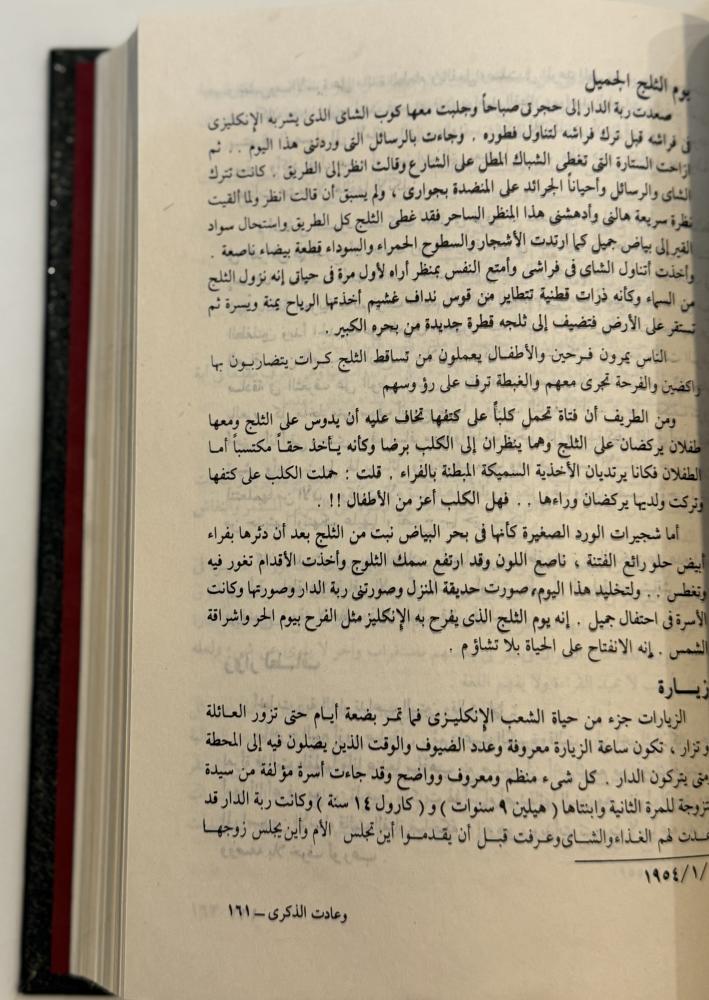 يوم الثلج الجميل
صعدت ربة الدار إلى حجرتى صباحاً وجلبت معها كوب الشاى الذى يشربه الإنكليزى
فى فراشه قبل ترك فراشه لتناول فطوره . وجاءت بالرسائل التى وردتنى هذا اليوم . . ثم
ازاحت الستارة التى تغطى الشباك المطل على الشارع وقالت انظر إلى الطريق . كانت تترك
الشاى والرسائل وأحياناً الجرائد على المنضدة بجوارى ، ولم يسبق أن قالت انظر ولما ألقيت
نظرة سريعة هالنى وأدهشنى هذا المنظر الساحر فقد غطى الثلج كل الطريق واستحال سواد
القير إلى بياض جميل كما ارتدت الأشجار والسطوح الحمراء والسوداء قطعة بيضاء ناصعة .
وأخذت أتناول الشاى فى فراشى وأمتع النفس بمنظر أراه لأول مرة فى حياتى إنه نزول الثلج
من السماء وكأنه ذرات قطنية تتطاير من قوس نداف غشيم أخذتها الرياح يمنة ويسرة ثم
تستقر على الأرض فتضيف إلى ثلجه قطرة جديدة من بحره الكبير .
الناس يمرون فرحين والأطفال يعملون من تساقط الثلج كرات يتضاربون بها
راكضين والفرحة تجرى معهم والغبطة ترف على رؤوسهم
ومن الطريف أن فتاة تحمل كلباً على كتفها تخاف عليه أن يدوس على الثلج ومعها
طفلان يركضان على الثلج وهما ينظران إلى الكلب برضا وكأنه يأخذ حقاً مكتسباً أما
الطفلان فكانا يرتديان الأخذية السميكة المبطنة بالفراء . قلت : حملت الكلب على كتفها
وتركت ولديها يركضان وراءها . . فهل الكلب أعز من الأطفال !! .
أما شجيرات الورد الصغيرة كأنها فى بحر البياض نبت من الثلج بعد أن دثرها بفراء
أبيض حلو رائع الفتنة ، ناصع اللون وقد ارتفع سمك الثلوج وأخذت الأقدام تغور فيه
وتغطس . . ولتخليد هذا اليوم، صورت حديقة المنزل وصورتنى ربة الدار وصورتها وكانت
الأسرة فى احتفال جميل . إنه يوم الثلج الذى يفرح به الإنكليز مثل الفرح بيوم الحر واشراقة
الشمس . إنه الانفتاح على الحياة بلا تشاؤم .
زيـارة
الزيارات جزء من حياة الشعب الإنكليزى فما تمر بضعة أيام حتى تزور العائلة
وتزار ، تكون ساعة الزيارة معروفة وعدد الضيوف والوقت الذين يصلون فيه إلى المحطة
متى يتركون الدار . كل شىء منظم ومعروف وواضح وقد جاءت أسرة مؤلفة من سيدة
تزوجة للمرة الثانية وابنتاها ( هيلين ٩ سنوات ) و ( كارول ١٤ سنة ) وكانت ربة الدار قد
عدت لهم الغذاء والشاى وعرفت قبل أن يقدموا أين تجلس الأم وأين يجلس زوجها
/١/١٩٥٤
وعادت الذكرى – ١٦١